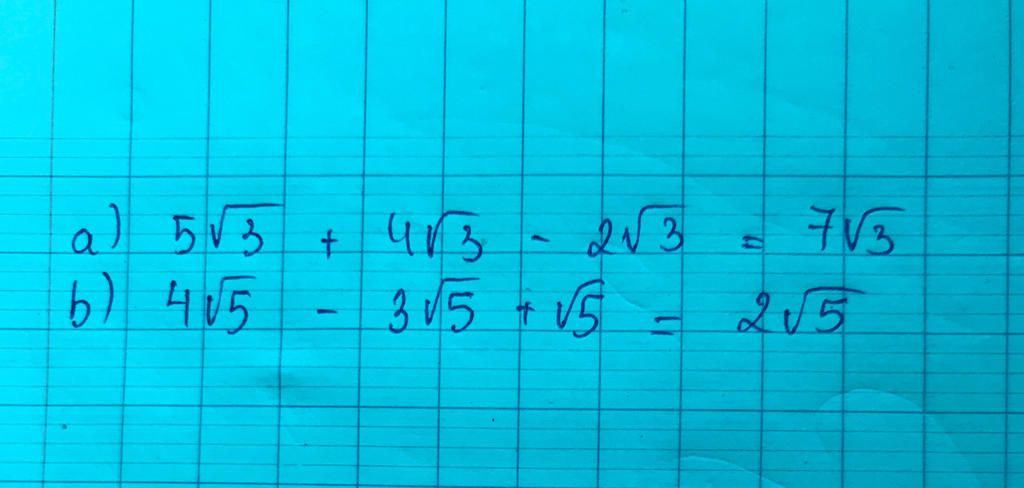 a) 5√3 + 4√3 - 2√3 = 7√3
b) 4√5 - 3√5 + √5 = 2√5